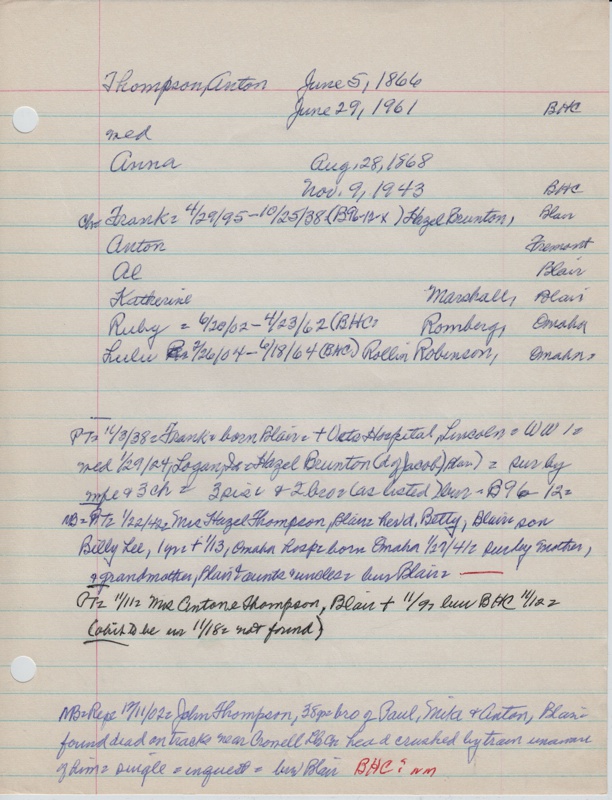 Thompson, Anton June 5, 1866
June 29, 1961 BHC
med
Anna Aug. 28, 1868
Nov. 9, 1943 BHC
ch= Frank= 4/29/95-10/25/38 (B96-12-x) Hazel Brunton, Blair
Anton Fremont
Al Blair
Katherine Marshall, Blair
Ruby = 6/20/02-4/23/62 (BHC= Romberg, Omaha
Lulu 2/26/04-6/18/64 (BHC) Rollin Robinson, Omaha=
PT= 11/3/38= Frank= born Blair= + Vets Hospital, Lincoln= WW 1=
med 1/29/24, Logan, Ia= Hazel Brunton (d of Jacob, Blair) = sur by
& 3 ch= 3 sis & 2 bro= (as listed) bur= B96-12=
NB= PT= 1/22/42= Mrs Hazel Thompson, Blair= Betty, Blair, son
Billy Lee, 1 yr= + 1/13, Omaha hosp= born Omaha 1/27/41= sur by mother,
& grandmother, Blair & aunts & uncles= bur Blair=
PT= 11/11= Mrs Antone Thompson, Blair + 11/9= bur BHC 11/12=
(obit to be in 11/18= not found)
NB= Repe 12/11/02= John Thompson, 35 yr= bro of Paul, Mike & Anton, Blair=
found dead on tracks near Crowell head crushed by train unaware
of him= single= inquest= bur Blair BHC? nm